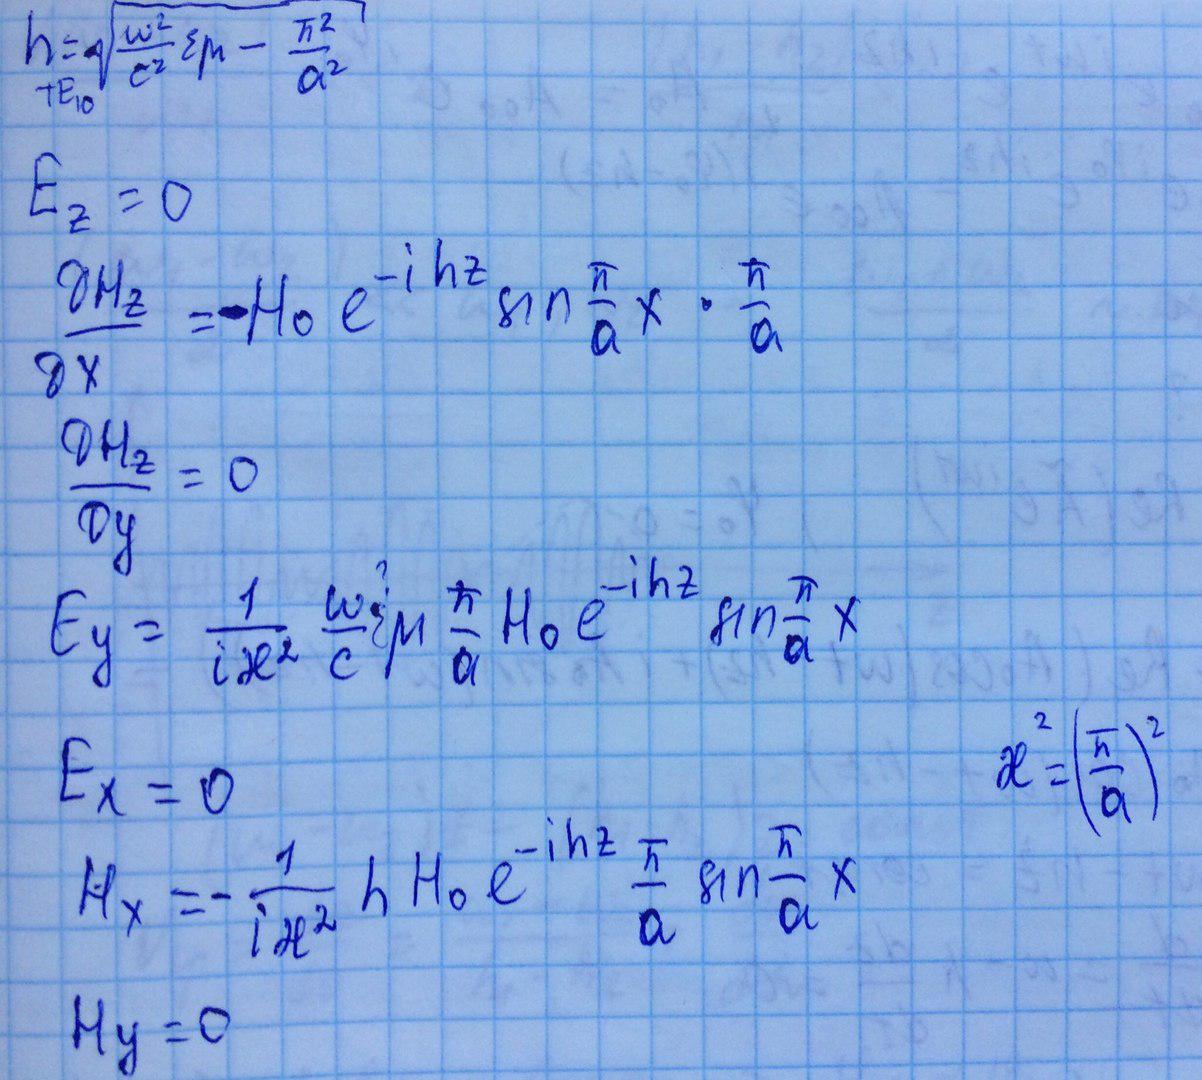 h_{TE_{10}} = √(ω²/c² εμ − π²/a²)
E_z = 0
∂H_z/∂x = −H_0 e^{−ihz} sin π/a x · π/a
∂H_z/∂y = 0
E_y = 1/(iæ²) ω/c εμ π/a H_0 e^{−ihz} sin π/a x
E_x = 0
æ² = (π/a)²
H_x = −1/(iæ²) h H_0 e^{−ihz} π/a sin π/a x
H_y = 0